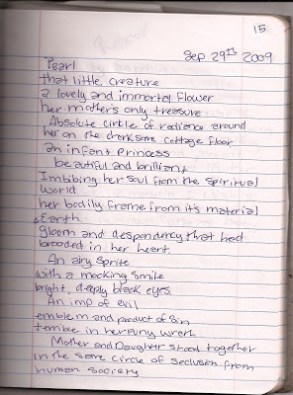 15
Sep 29th 2009
Pearl
that little creature
a lovely and immortal flower
her mother's only treasure
Absolute circle of radience around
her on the darksome cottage floor
an infant princess
beautiful and brilliant
Imbibing her soul from the spiritual
world
her bodily frame from it's material
Earth
gloom and despondency that had
brooded in her heart
An airy sprite
with a mocking smile
bright, deeply black eyes
An imp of evil
emblem and product of sin
terrible in her puny wrath
Mother and Daughter stood together
in the same circle of seclusion from
human society